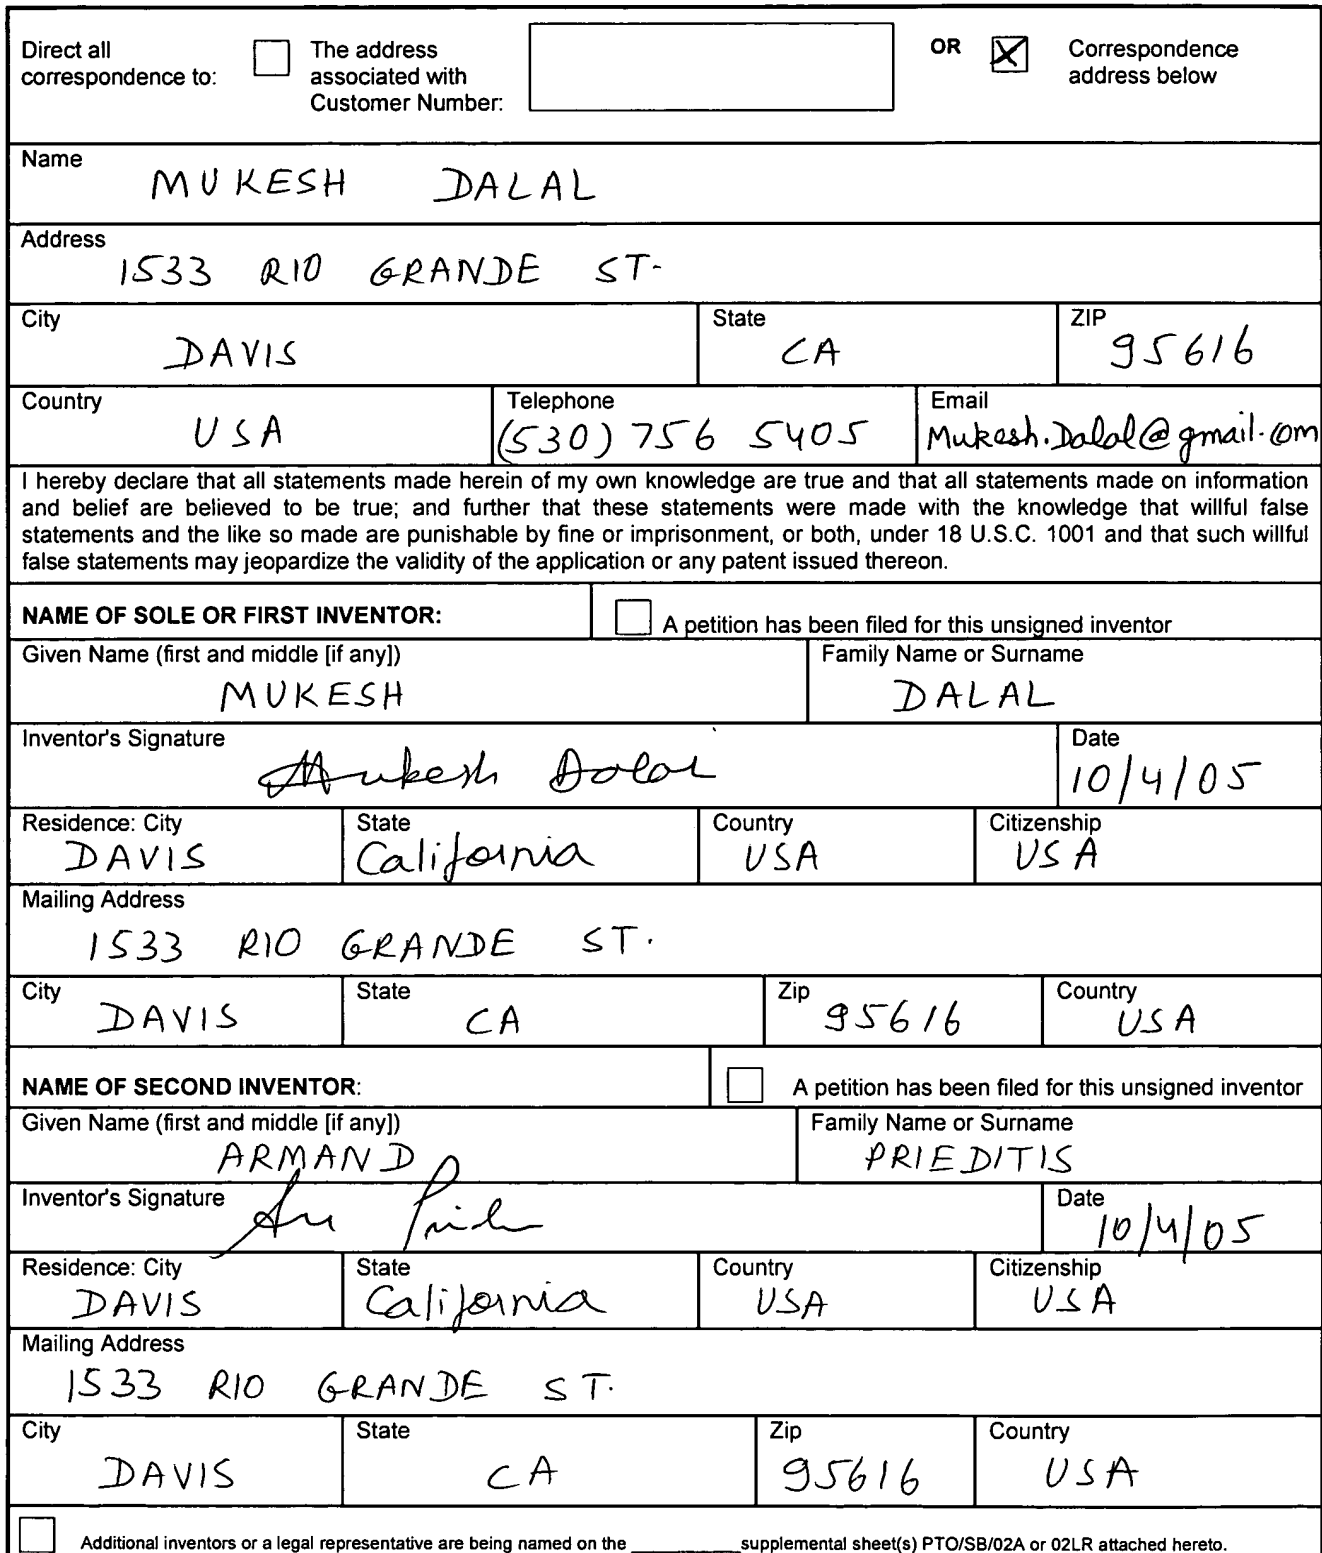 Direct all correspondence to: The address associated with Customer Number: OR Correspondence address below
Name
MUKESH DALAL
Address
1533 RIO GRANDE ST.
City State ZIP
DAVIS CA 95616
Country Telephone Email
USA (530) 756 5405 Mukesh.Dalal@gmail.com
I hereby declare that all statements made herein of my own knowledge are true and that all statements made on information
and belief are believed to be true; and further that these statements were made with the knowledge that willful false
statements and the like so made are punishable by fine or imprisonment, or both, under 18 U.S.C. 1001 and that such willful
false statements may jeopardize the validity of the application or any patent issued thereon.
NAME OF SOLE OR FIRST INVENTOR: A petition has been filed for this unsigned inventor
Given Name (first and middle [if any]) Family Name or Surname
MUKESH DALAL
Inventor's Signature Date
Mukesh Dalal 10/4/05
Residence: City State Country Citizenship
DAVIS California USA USA
Mailing Address
1533 RIO GRANDE ST.
City State Zip Country
DAVIS CA 95616 USA
NAME OF SECOND INVENTOR: A petition has been filed for this unsigned inventor
Given Name (first and middle [if any]) Family Name or Surname
ARMAND PRIEDITIS
Inventor's Signature Date
10/4/05
Residence: City State Country Citizenship
DAVIS California USA USA
Mailing Address
1533 RIO GRANDE ST.
City State Zip Country
DAVIS CA 95616 USA
Additional inventors or a legal representative are being named on the supplemental sheet(s) PTO/SB/02A or 02LR attached hereto.